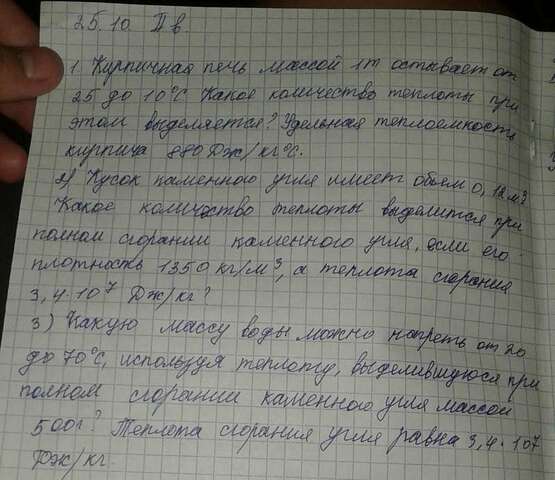 25.10. II в.
1. Кирпичная печь массой 1т остывает от
25 до 10°С Какое количество теплоты при
этом выделяется? Удельная теплоемкость
кирпича 880 Дж/кг°С.
2) Кусок каменного угля имеет объем 0,12м³
Какое количество теплоты выделится при
полном сгорании каменного угля, если его
плотность 1350 кг/м³, а теплота сгорания
3,4·10⁷ Дж/кг?
3) Какую массу воды можно нагреть от 20
до 70°С, используя теплоту, выделившуюся при
полном сгорании каменного угля массой
500г? Теплота сгорания угля равна 3,4·10⁷
Дж/кг.